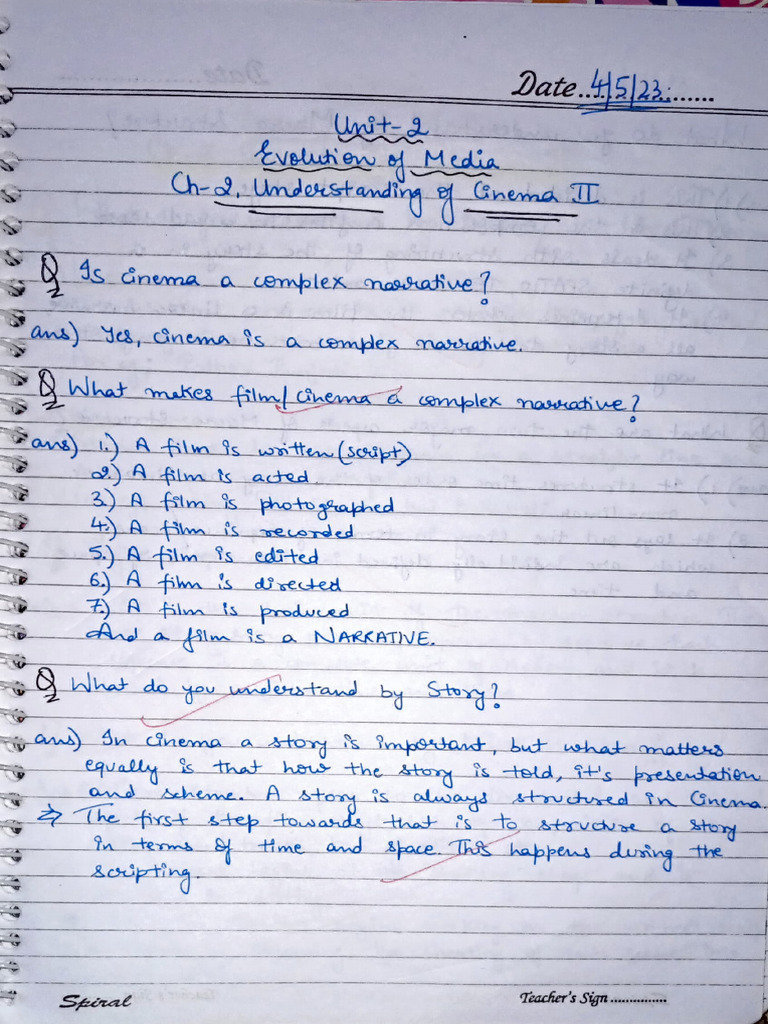 Date..4/5/23:.......
Unit-2
Evolution of Media
Ch-2. Understanding of Cinema II
Q Is cinema a complex narrative?
ans) Yes, cinema is a complex narrative.
Q What makes film/cinema a complex narrative?
ans) 1.) A film is written (script)
2.) A film is acted
3.) A film is photographed
4.) A film is recorded
5.) A film is edited
6.) A film is directed
7.) A film is produced
And a film is a NARRATIVE.
Q What do you understand by Story?
ans) In cinema a story is important, but what matters
equally is that how the story is told, it's presentation
and scheme. A story is always structured in Cinema.
⇒ The first step towards that is to structure a story
in terms of time and space. This happens during the
scripting.
Spiral
Teacher's Sign ...............